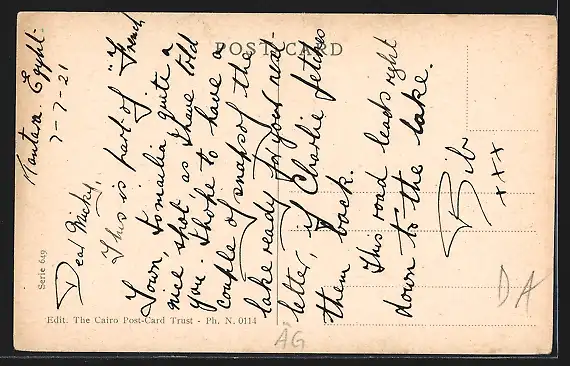 POST CARD
Kantara. Egypt.
7-7-21
Dear Micky,
This is part of "French
Town" Ismailia quite a
nice spot as I have told
you. I hope to have a
couple of snaps of the
lake ready for your next
letter, if Charlie fetches
them back.
This road leads right
down to the lake.
Bib
xxx
Serie 649
Edit. The Cairo Post-Card Trust - Ph. N. 0114
AG
DA